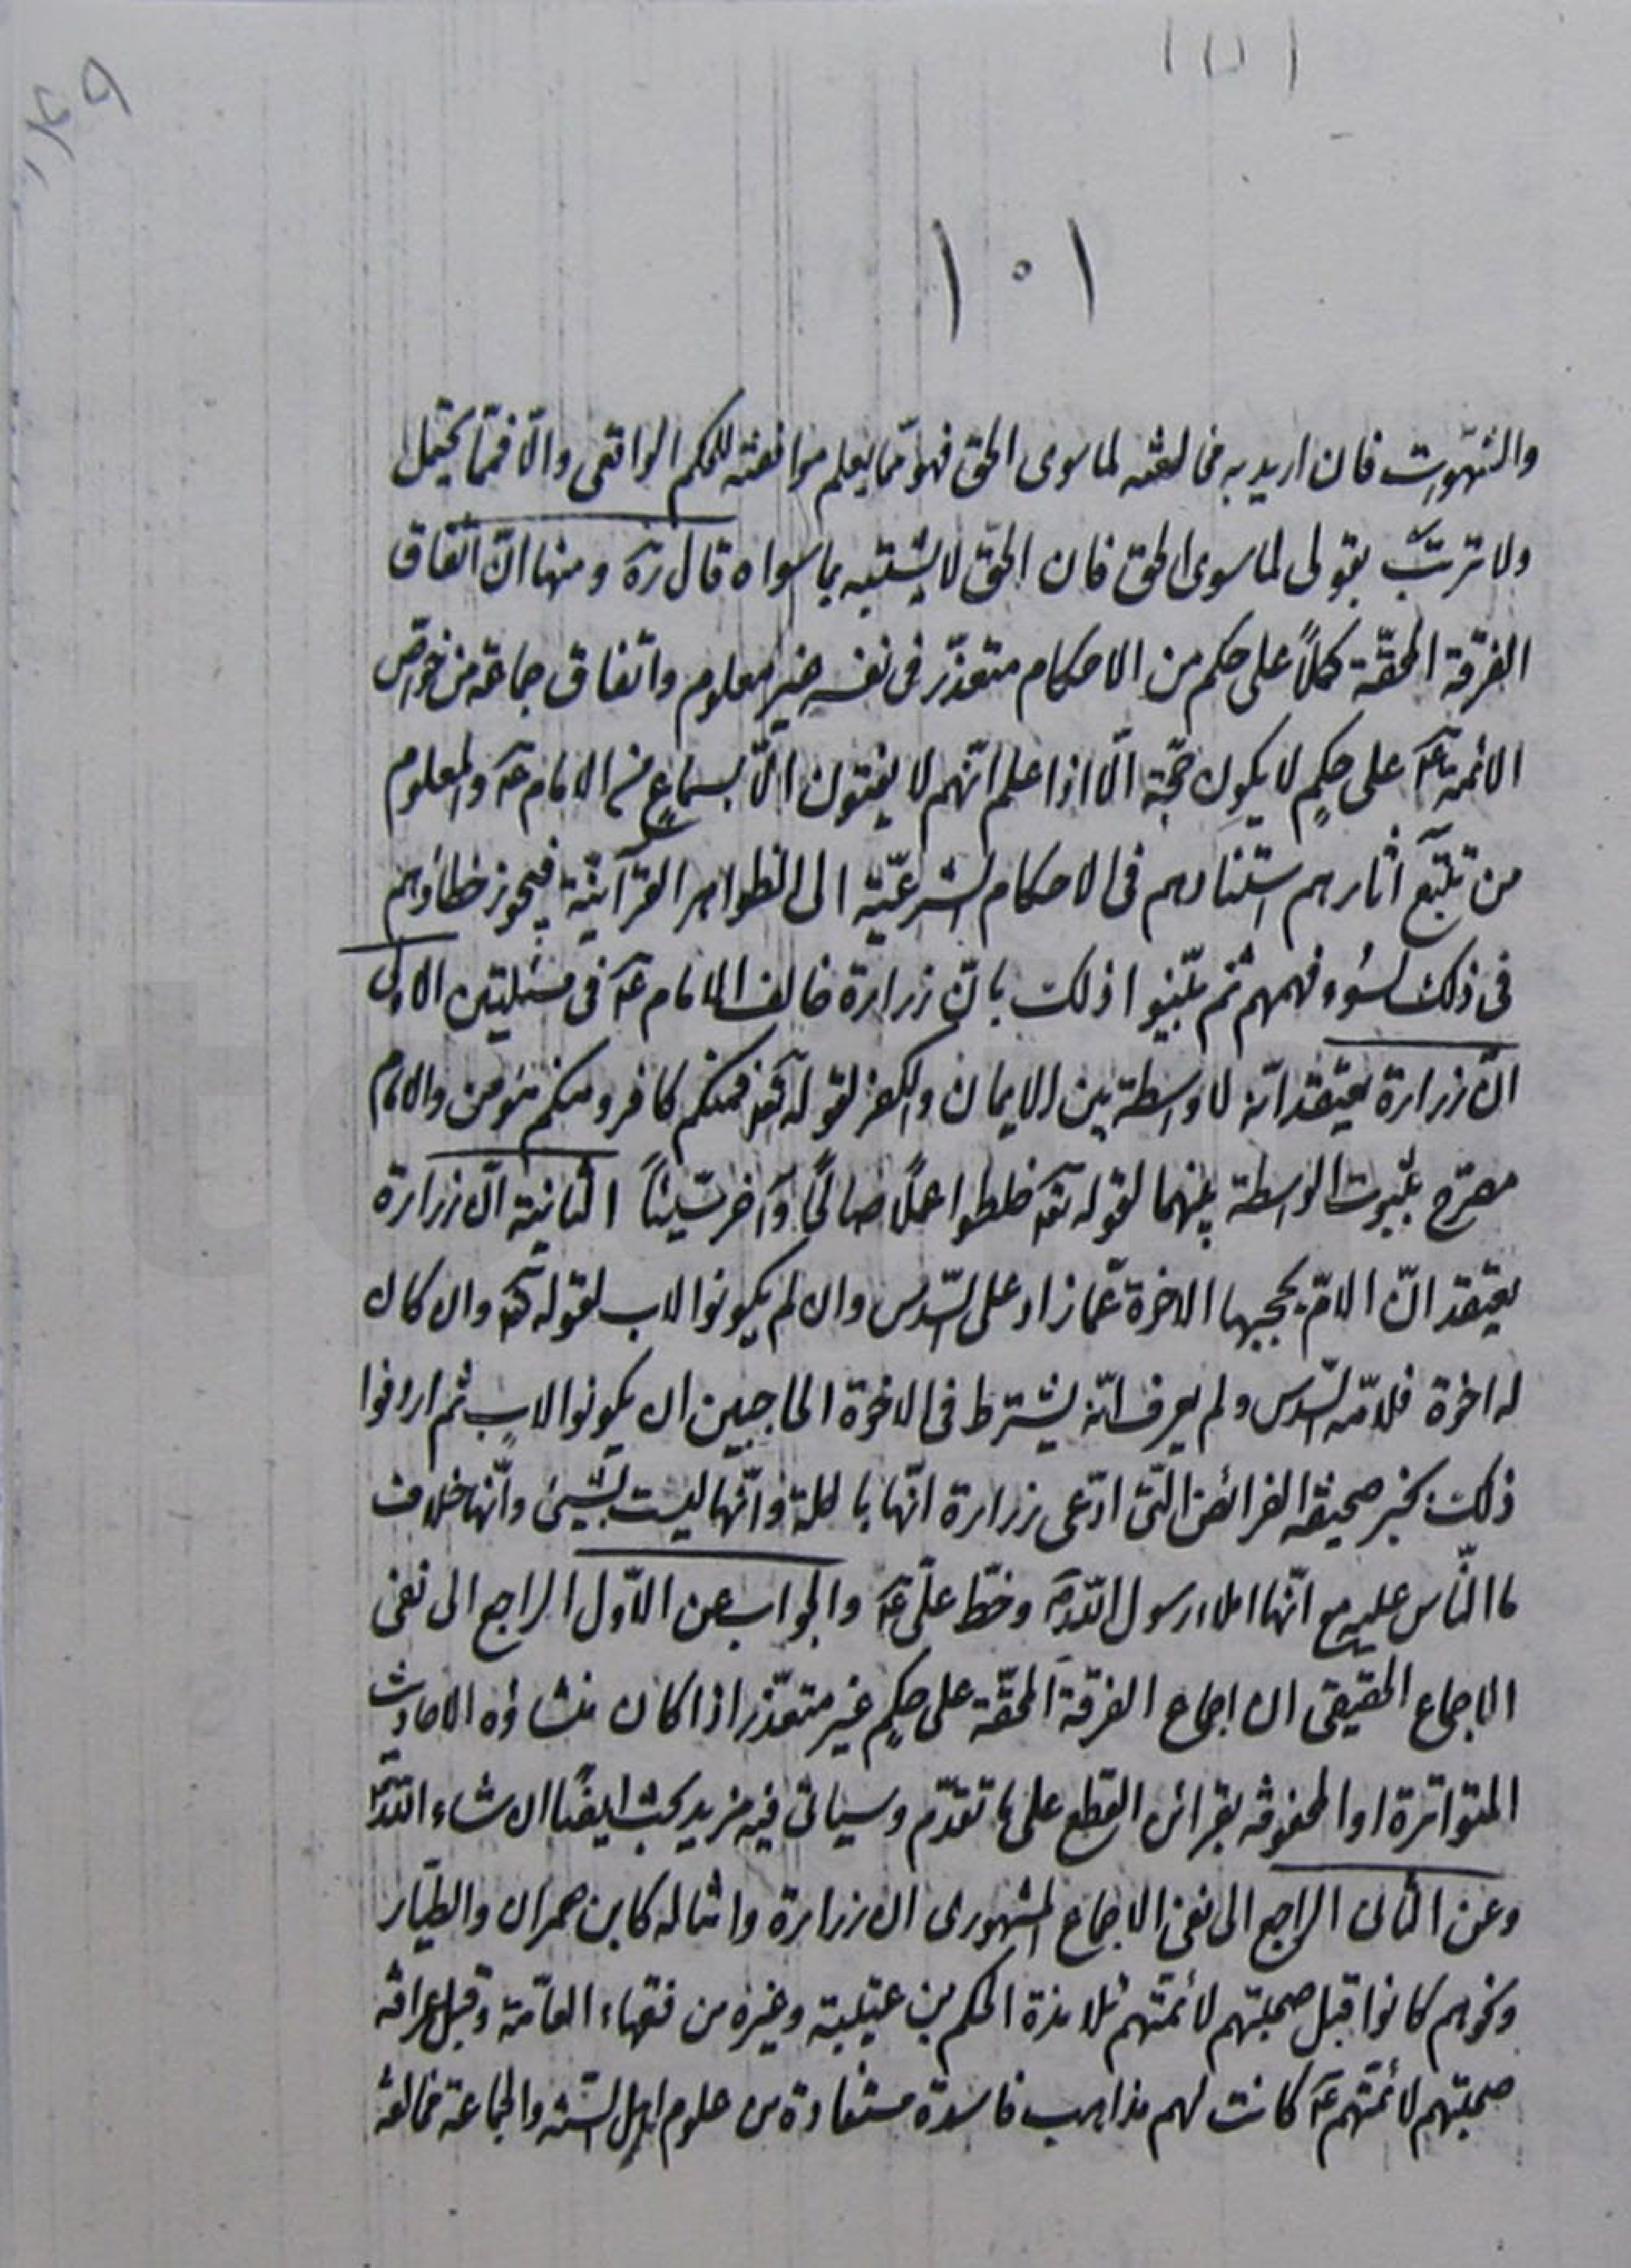 ١٠١
١٠١
والشهوت فان اريد به مخالفته لما سوى الحق فهو مما يعلم موافقته للحكم الواقعى والّا فمما يحتمل
ولا ترتب بقولى لما سوى الحق فان الحق لا يشتبه بما سواه قال ره ومنها انّ اتفاق
الفرقة المحقّة كملاً على حكم من الاحكام متعذّر فى نفسه غير معلوم واتفاق جماعة من خواص
الائمة عه على حكمٍ لا يكون حجّة الّا اذا علم انّهم لا يفتون الّا بسماعٍ من الامام عه والمعلوم
من تتبّع آثارهم استنادهم فى الاحكام الشرعيّة الى الظواهر القرآنيّة فيجوز خطاؤهم
فى ذلك لسوء فهمهم ثم بيّنوا ذلك بانّ زرارة خالف الامام عه فى مسئلتين الاولى
انّ زرارة يعتقد انّه لا واسطة بين الايمان والكفر لقوله تعه فمنكم كافر ومنكم مؤمن والامام
صرّح بثبوت الواسطة بينهما لقوله تعه خلطوا عملاً صالحاً وآخر سيّئاً الثانية انّ زرارة
يعتقد انّ الامّ يحجبها الاخوة عمّا زاد على السّدس وان لم يكونوا لاب لقوله تعه وان كان
له اخوة فلامّه السّدس ولم يعرف انّه يشترط فى الاخوة الحاجبين ان يكونوا لابٍ ثم اردفوا
ذلك بخبر صحيفة الفرائض الّتى ادّعى زرارة انّها باطلة وانّها ليست بشيئ وانّها خلاف
ما النّاس عليه مع انّها املاء رسول اللّه ص وخطّ علىّ عه والجواب عن الاوّل الراجع الى نفى
الاجماع الحقيقى ان اجماع الفرقة المحقّة على حكمٍ غير متعذّر اذا كان منشاؤه الاحاديث
المتواترة او المحفوفة بقرائن القطع على ما تقدّم وسياتى فيه مزيد بحث ايضاً ان شاء اللّه تعه
وعن الثانى الراجع الى نفى الاجماع المشهورى ان زرارة وامثاله كابن حمران والطيّار
ونحوهم كانوا قبل صحبتهم لائمّتهم تلامذة الحكم بن عتيبة وغيره من فقهاء العامّة وقبل عراقة
صحبتهم لائمّتهم عه كانت لهم مذاهب فاسدة مستفادة من علوم اهل السّنّة والجماعة مخالفة